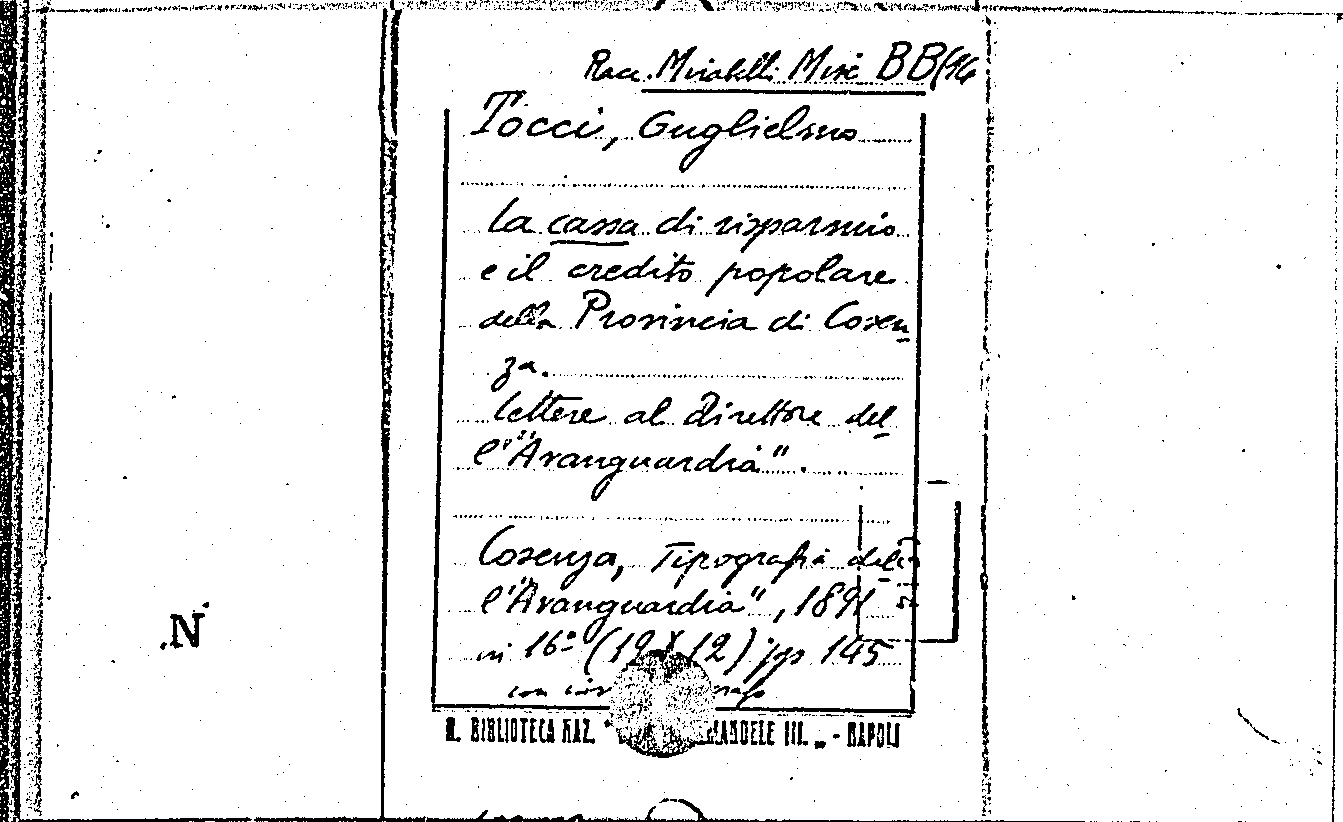 Racc. Mirabelli Misc BB/94
Tocci, Guglielmo
La cassa di risparmio
e il credito popolare
della Provincia di Cosen
za.
lettere al Direttore del
l'"Avanguardia".
Cosenza, Tipografia del
l'"Avanguardia", 1891
in 16° (19 X 12) pp 145
con
R. BIBLIOTECA NAZ. " MANUELE III. „ - NAPOLI
N